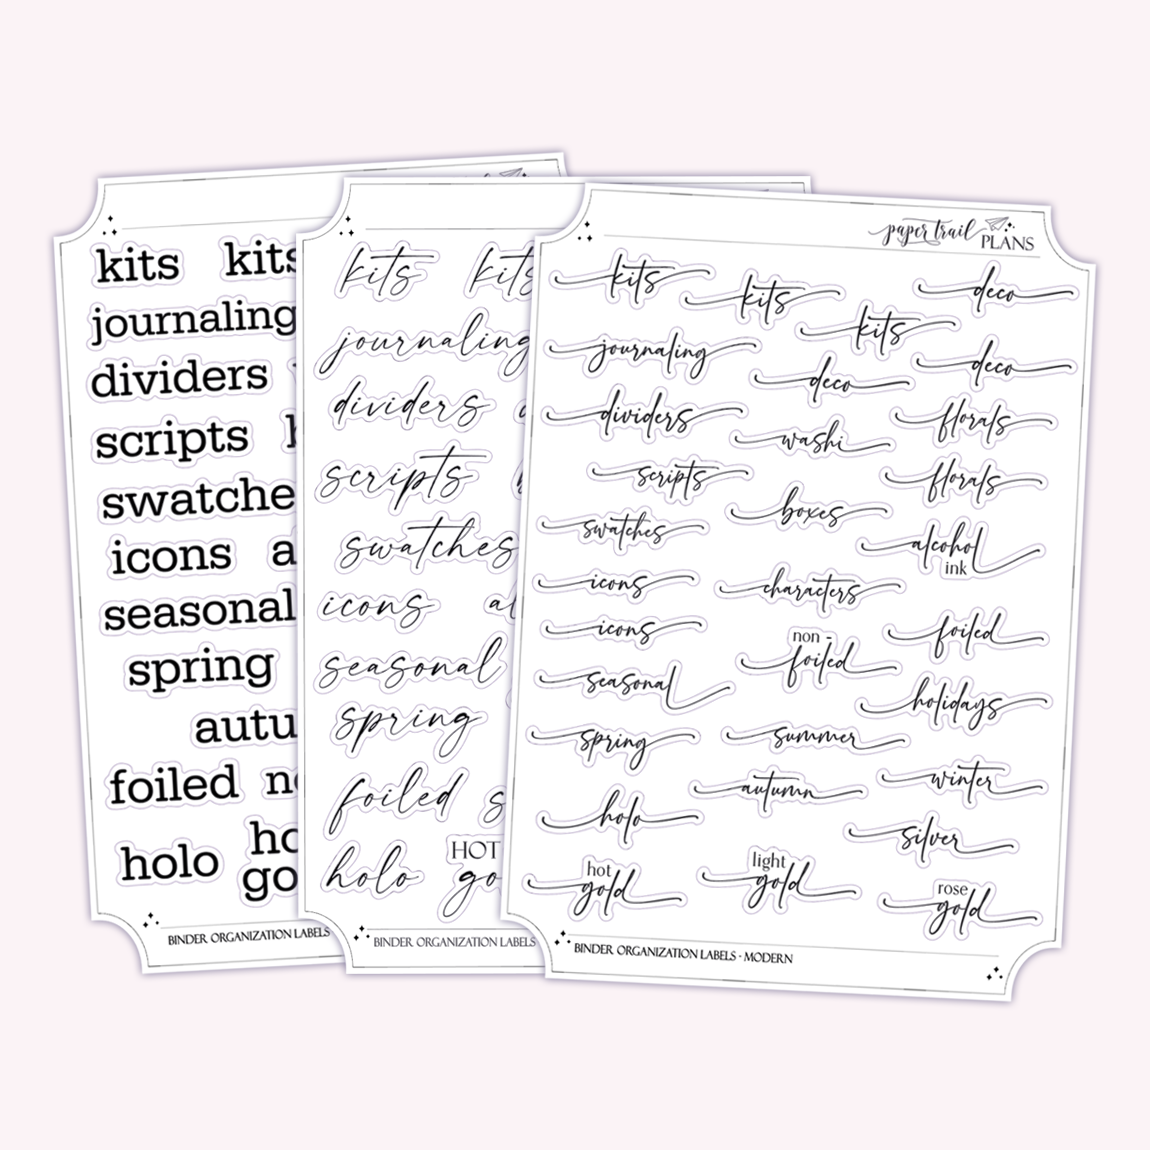 kits kits
journaling
dividers
scripts
swatche
icons a
seasonal
spring
autu
foiled no
holo ho
go
BINDER ORGANIZATION LABELS
kits kits
journaling
dividers
scripts
swatches
icons al
seasonal
spring
foiled s
holo HOT
go
BINDER ORGANIZATION LABELS
paper trail PLANS
kits
kits
kits
deco
journaling
deco
deco
dividers
washi
florals
scripts
florals
swatches
boxes
alcohol
ink
icons
characters
icons
non -
foiled
foiled
seasonal
holidays
spring
summer
winter
autumn
holo
silver
hot
gold
light
gold
rose
gold
BINDER ORGANIZATION LABELS - MODERN